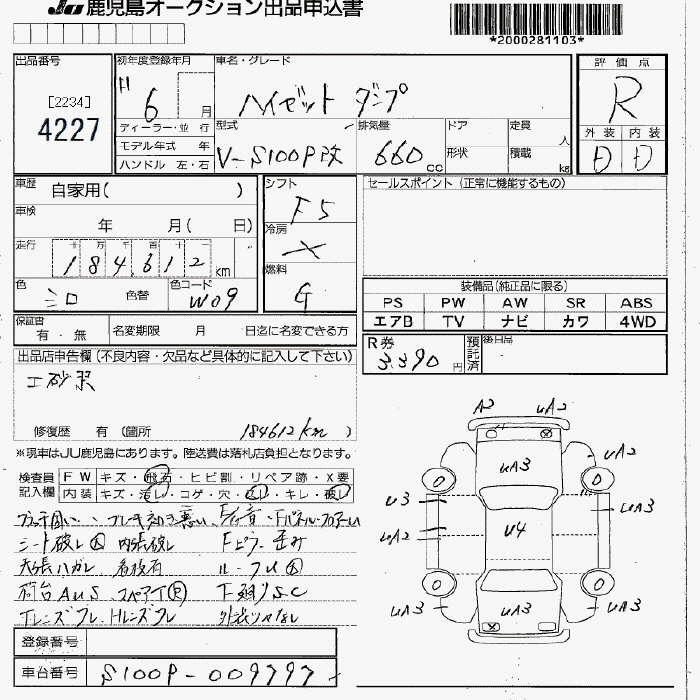 JU 鹿児島オークション出品申込書
*2000281103*
出品番号
[2234]
4227
初年度登録年月
H 6 月
ディーラー・並 行
モデル年式 年
ハンドル 左・右
車名・グレード
ハイゼット ダンプ
型式
V-S100P改
排気量
660 cc
ドア
形状
定員 人
積載 kg
評価点
R
外装 内装
D D
車歴
自家用( )
車検
年 月( 日)
走行
十 万 千 百 十 一
184,612 km
色
シロ 色替
色コード
W09
シフト
F5
冷房
×
燃料
G
セールスポイント (正常に機能するもの)
装備品(純正品に限る)
PS PW AW SR ABS
エアB TV ナビ カワ 4WD
保証書
有・無
名変期限 月 日迄に名変できる方
R券
3,390 円
預託済
後日品
出品店申告欄(不良内容・欠品など具体的に記入して下さい)
修復歴 有 (箇所 184612km )
※現車はJU鹿児島にあります。陸送費は落札店負担となります。
検査員
記入欄
FW キズ・飛石・ヒビ割・リペア跡・X要
内装 キズ・汚レ・コゲ・穴・スレ・キレ・破レ
シート破レ 内張破レ Fピラー歪み
天張ハガレ 看板有
荷台AUS スペアイR 下廻りSC
TレンズワレHレンズワレ
登録番号
車台番号 S100P-009797
A2 UA2
UA3 UA2
U3 UA3
UA2 U4
UA3 UA3 UA3